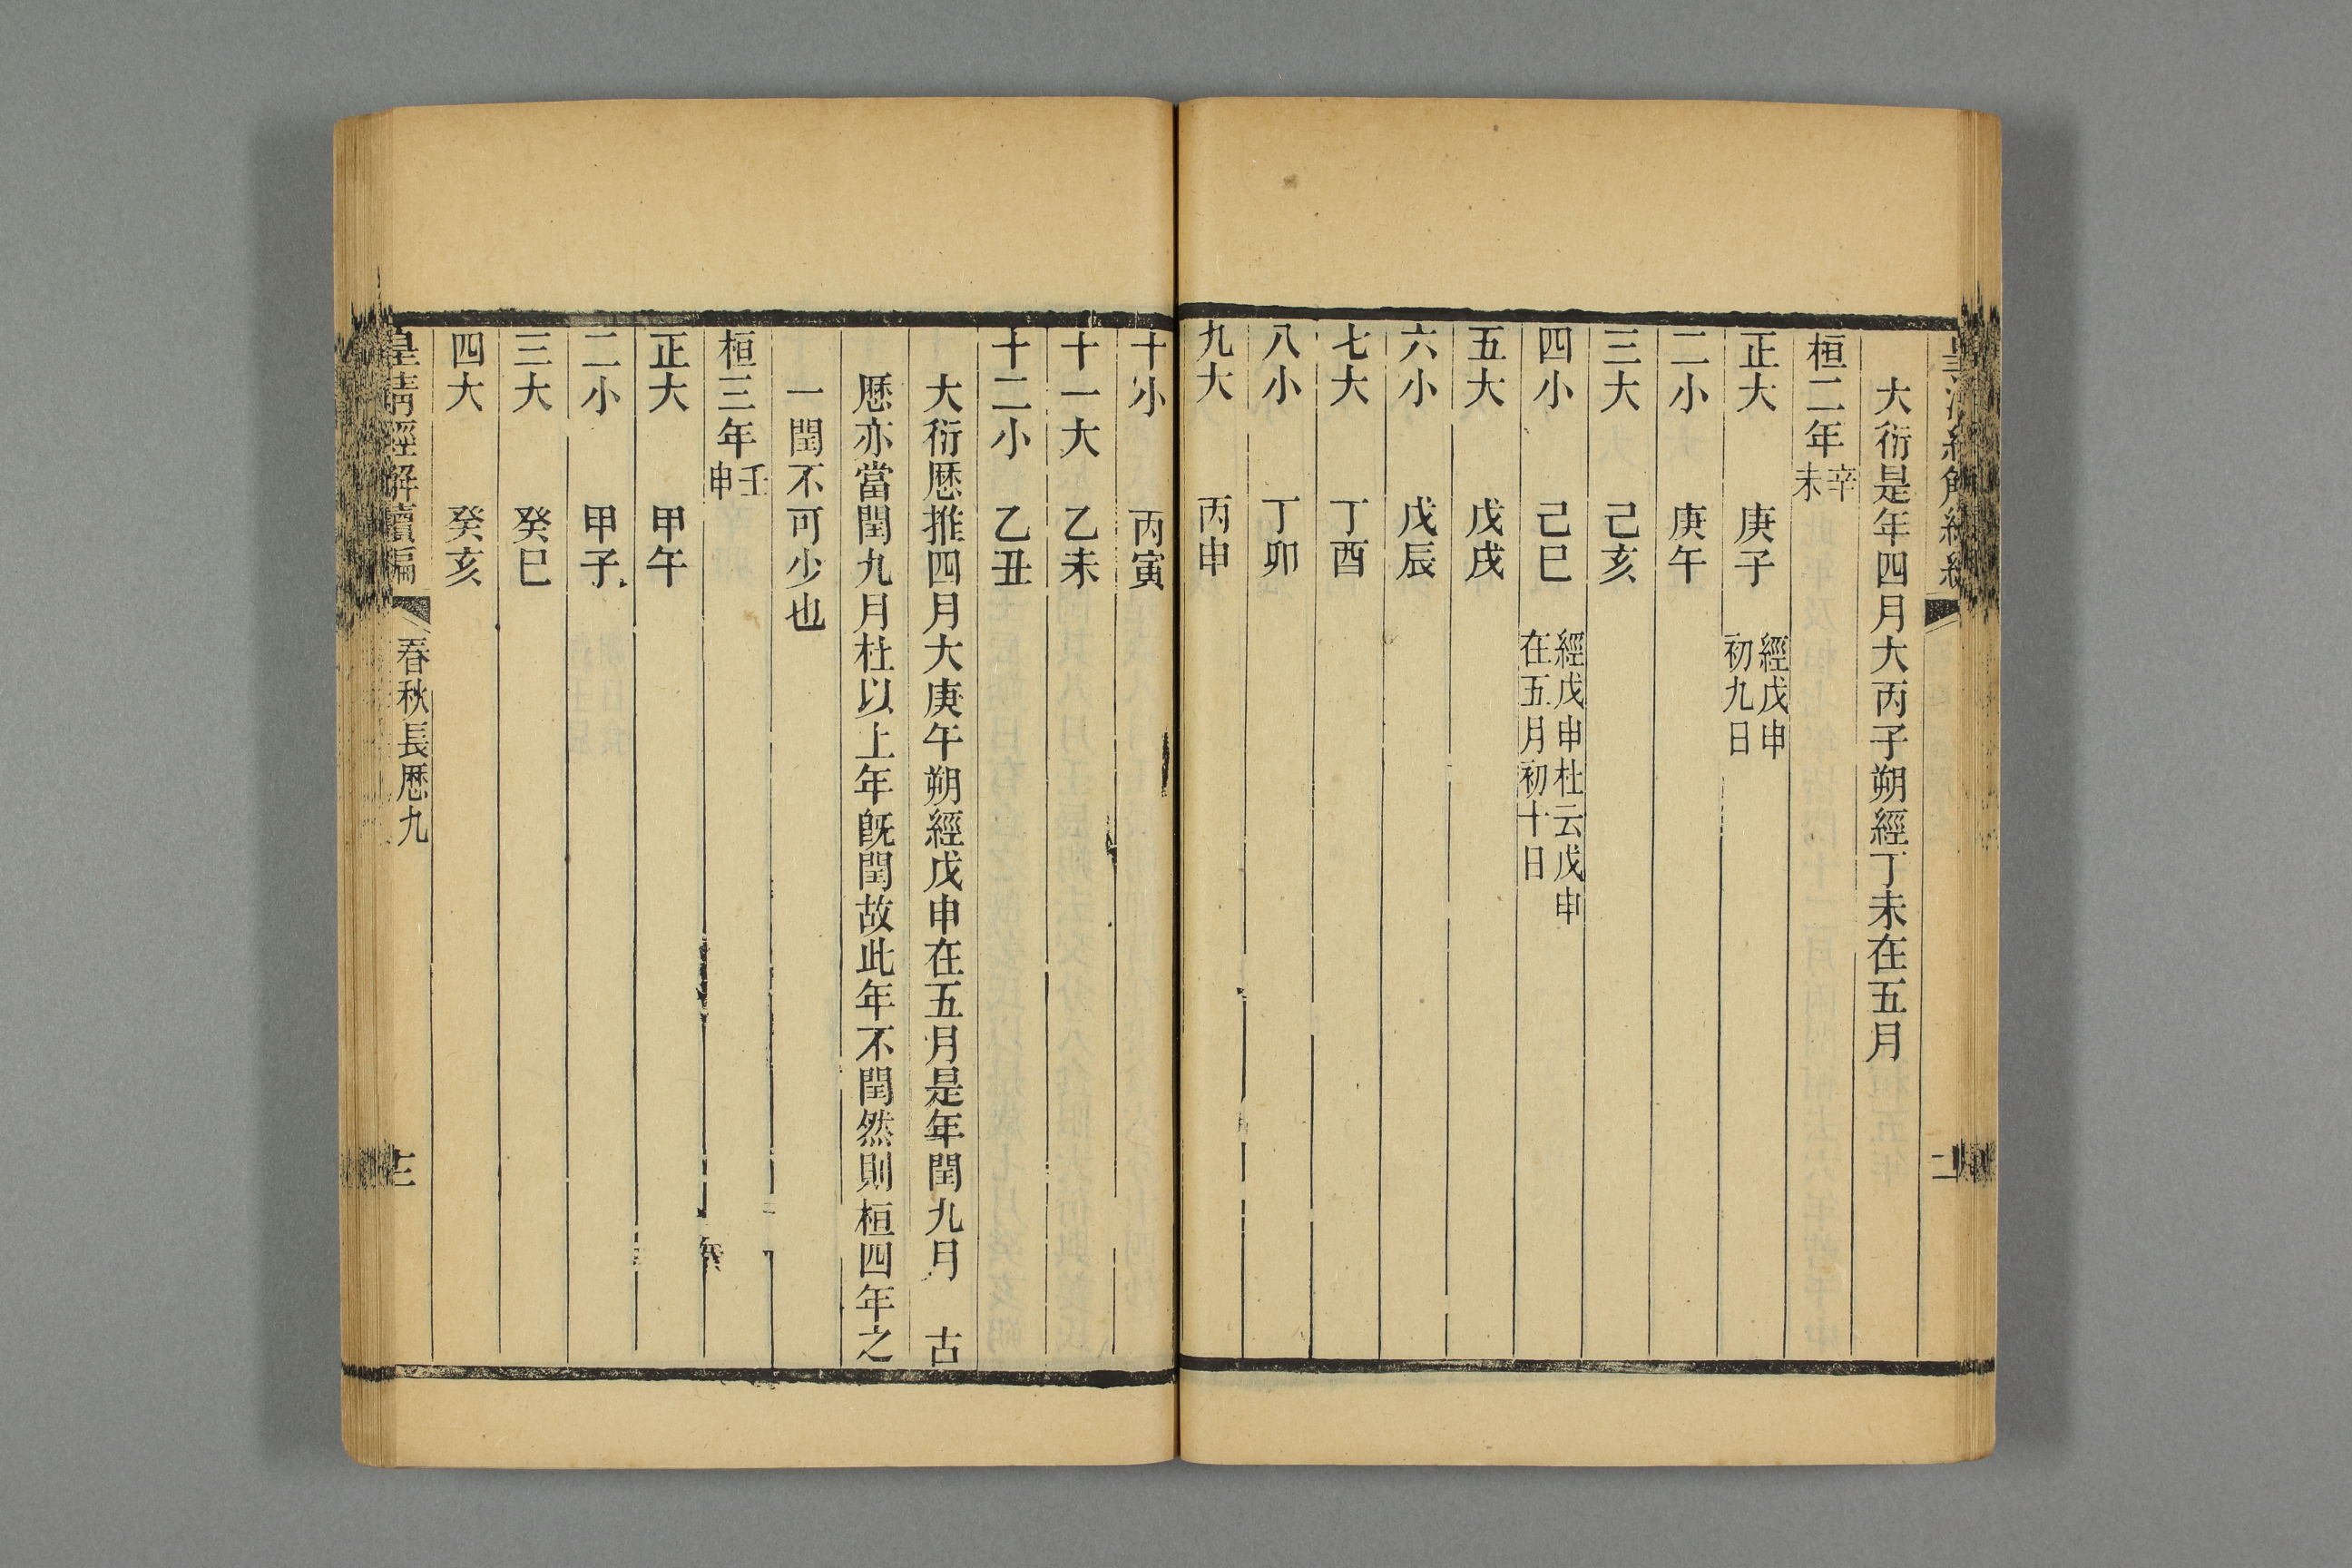 大衍是年四月大丙子朔經丁未在五月
桓二年辛未
正大 庚子 經戊申初九日
二小 庚午
三大 己亥
四小 己巳 經戊申杜云戊申在五月初十日
五大 戊戌
六小 戊辰
七大 丁酉
八小 丁卯
九大 丙申
十小 丙寅
十一大 乙未
十二小 乙丑
大衍厯推四月大庚午朔經戊申在五月是年閏九月 古
厯亦當閏九月杜以上年旣閏故此年不閏然則桓四年之
一閏不可少也
桓三年壬申
正大 甲午
二小 甲子
三大 癸巳
四大 癸亥
皇淸經解續編 春秋長厯九